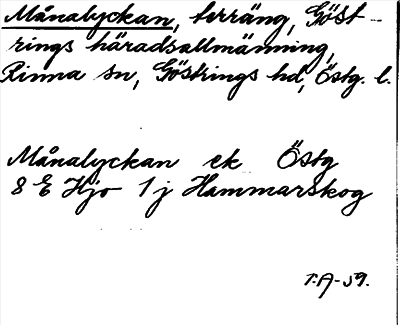 Månalyckan, terräng, Göst-
rings häradsallmänning,
Rinna sn, Göstrings hd, Östg. l.
Månalyckan ek Östg
8 E Hjo 1 j Hammarskog
T.A-59.